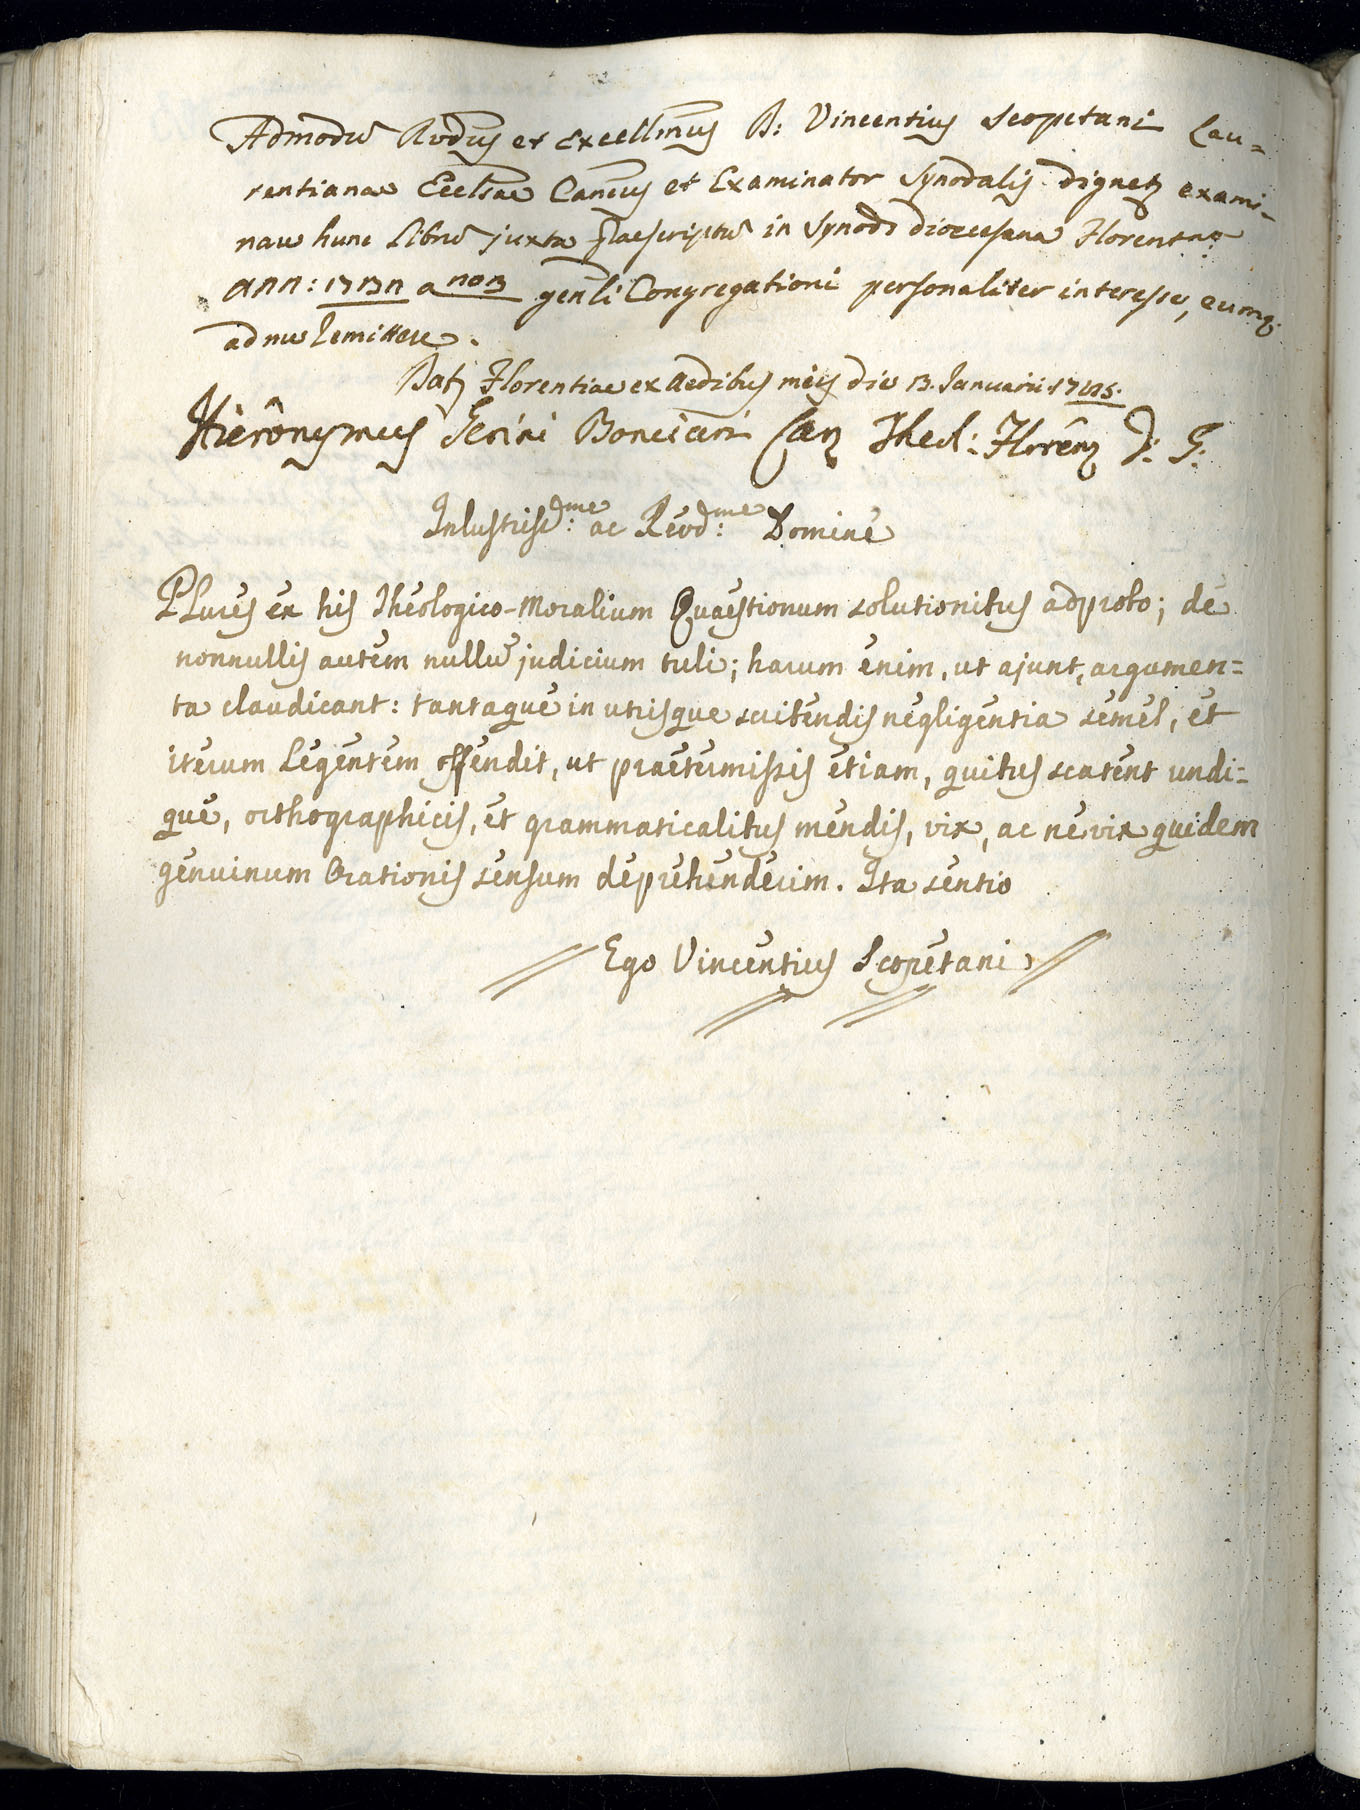 Admodũ Rvdus et Excellmus D: Vincentius Scopetani Lau=
rentianae Ecclsae Cancus et Examinator Synodalis dignetr exami-
nare hunc Librũ juxta praescriptũ in Synodo Dioecesana Florentna
ann: genli Congregationi personaliter interesse, eumq.
ad me remittere.
Datr Florentiae ex Aedibus meis die Januarii
Hierônymus Bonciani Can Theol: Florên
Inlustrissme: ac Revdme: Domine
PLures ex his Theologico-Moralium Quaestionum solutionibus adprobo; de
nonnullis autem nullũ judicium tuli; harum enim, ut ajunt, argumen=
ta claudicant: tantaque in utrisque scribendis negligentia semel, et
iterum Legentem offendit, ut praetermissis etiam, quibus scatent undi=
que, orthographicis, et grammaticalibus mendis, vix, ac ne vix quidem
genuinum Orationis sensum deprehenderim. Ita sentio
Ego Vincentius Scopetani